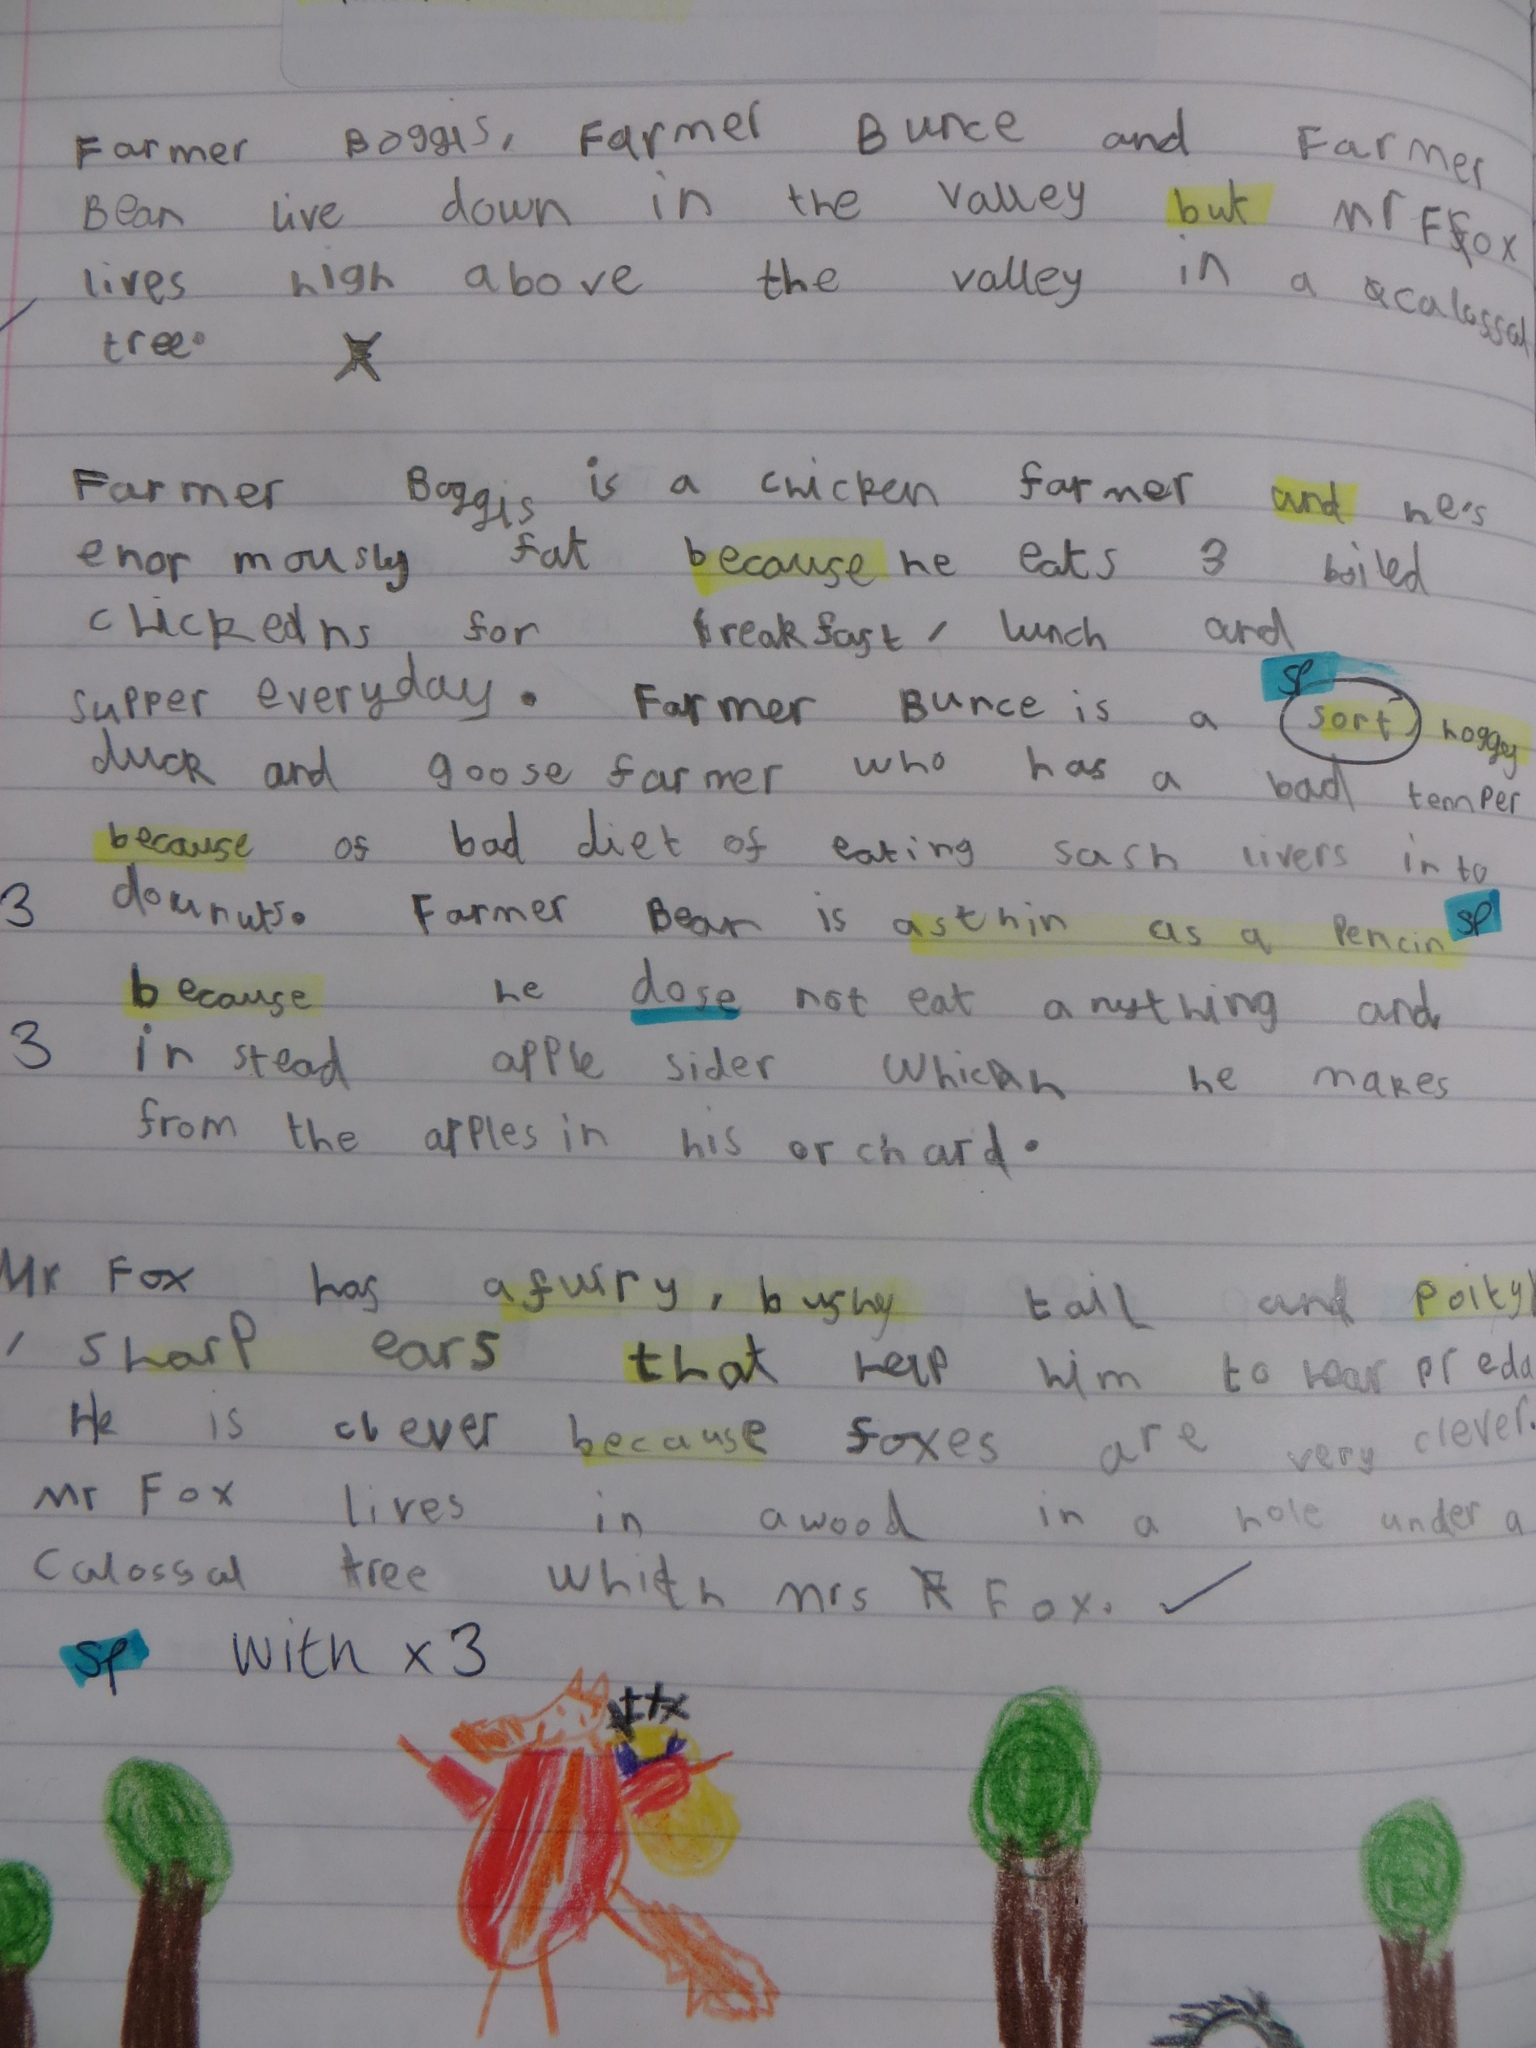 Farmer Boggis, Farmer Bunce and Farmer
Bean live down in the valley but Mr Fox
lives high above the valley in a calossal
tree.
Farmer Boggis is a chicken farmer and he's
enormously fat because he eats 3 boiled
chickedns for breakfast, lunch and
sp
supper everyday. Farmer Bunce is a sort, hoggy
duck and goose farmer who has a bad temper
because of bad diet of eating sash livers in to
3 dounuts. Farmer Bean is as thin as a pencin sp
because he dose not eat anything and
3 in stead apple sider which he makes
from the apples in his orchard.
Mr Fox has a furry, bushy tail and poity
, sharp ears that help him to hear preda
He is clever because foxes are very clever.
Mr Fox lives in a wood in a hole under a
calossal tree whith mrs Fox.
sp with x 3